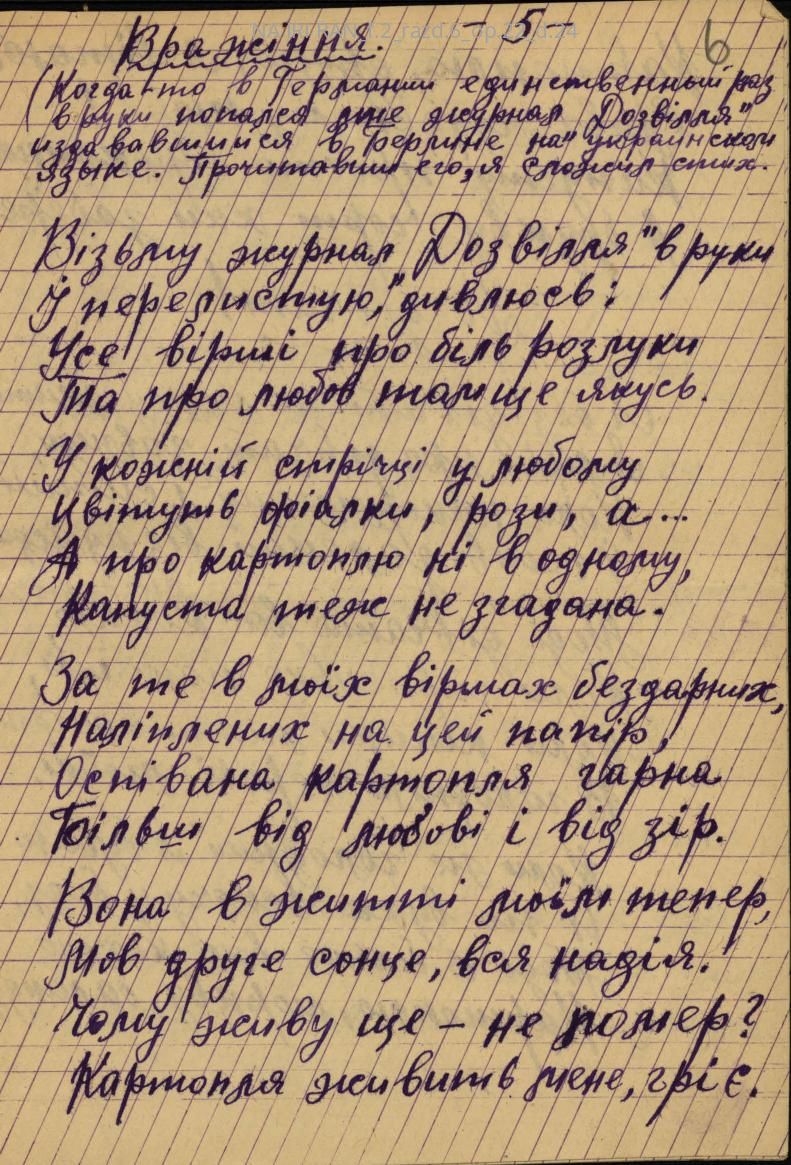 – 5 –
6
Вражіння.
(Когда-то в Германии единственный раз
в руки попался мне журнал „Дозвілля"
издававшийся в Берлине на украинском
языке. Прочитавши его, я сложил стих.
Візьму журнал „Дозвілля" в руки
Й перелистую, дивлюсь:
Усе вірші про біль розлуки
Та про любов там ще якусь.
У кожній стрічці у любому
Цвітуть фіалки, рози, а...
А про картоплю ні в одному,
Капуста теж не згадана.
За те в моїх віршах бездарних,
Наліплених на цей папір,
Оспівана картопля гарна
Більш від любові і від зір.
Вона в житті моїм тепер,
Мов друге сонце, вся надія.
Чому живу ще – не помер?
Картопля живить мене, гріє.